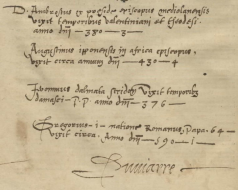 D. Ambrosius ex preside episcopus mediolanensis
vixit temporibus valentiniani et theodosi
anno dnj 380 - 8
Augustinus iponensis in africa episcopus
vixit circa annum dnj - 430 - 4
Jeronimus dalmata vixit temporibus
damasi - PP anno dnj - 376 -
Gregorius - 1 - natione Romanus, Papa - 64 -
vixit circa. Anno dnj - 590 - 1